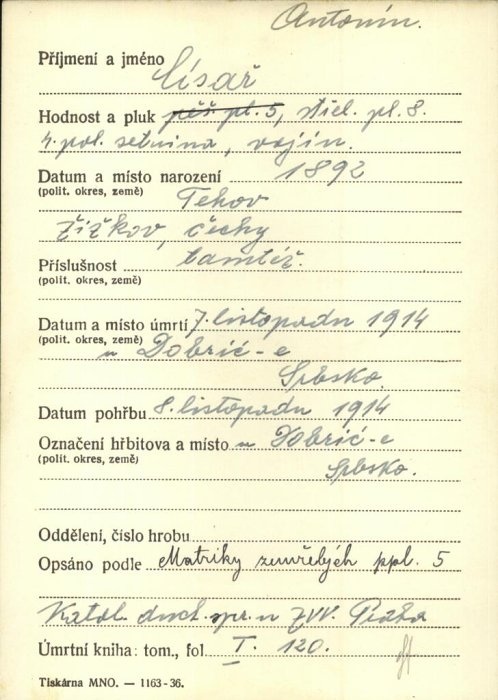 Antonín.
Příjmení a jméno Císař
Hodnost a pluk pěš. pl. 5, střel. pl. 8.
4. pol. setnina, vojín.
Datum a místo narození 1892
(polit. okres, země) Tehov
Žižkov, Čechy
Příslušnost tamtéž.
(polit. okres, země)
Datum a místo úmrtí 7. listopadu 1914
(polit. okres, země) u Dobrić-e
Srbsko.
Datum pohřbu 8. listopadu 1914
Označení hřbitova a místo u Dobrić-e
(polit. okres, země) Srbsko.
Oddělení, číslo hrobu
Opsáno podle Matriky zemřelých ppl. 5
Katol. duch. spr. u ZVV. Praha
Úmrtní kniha: tom., fol. I. 120.
Tiskárna MNO. — 1163-36.